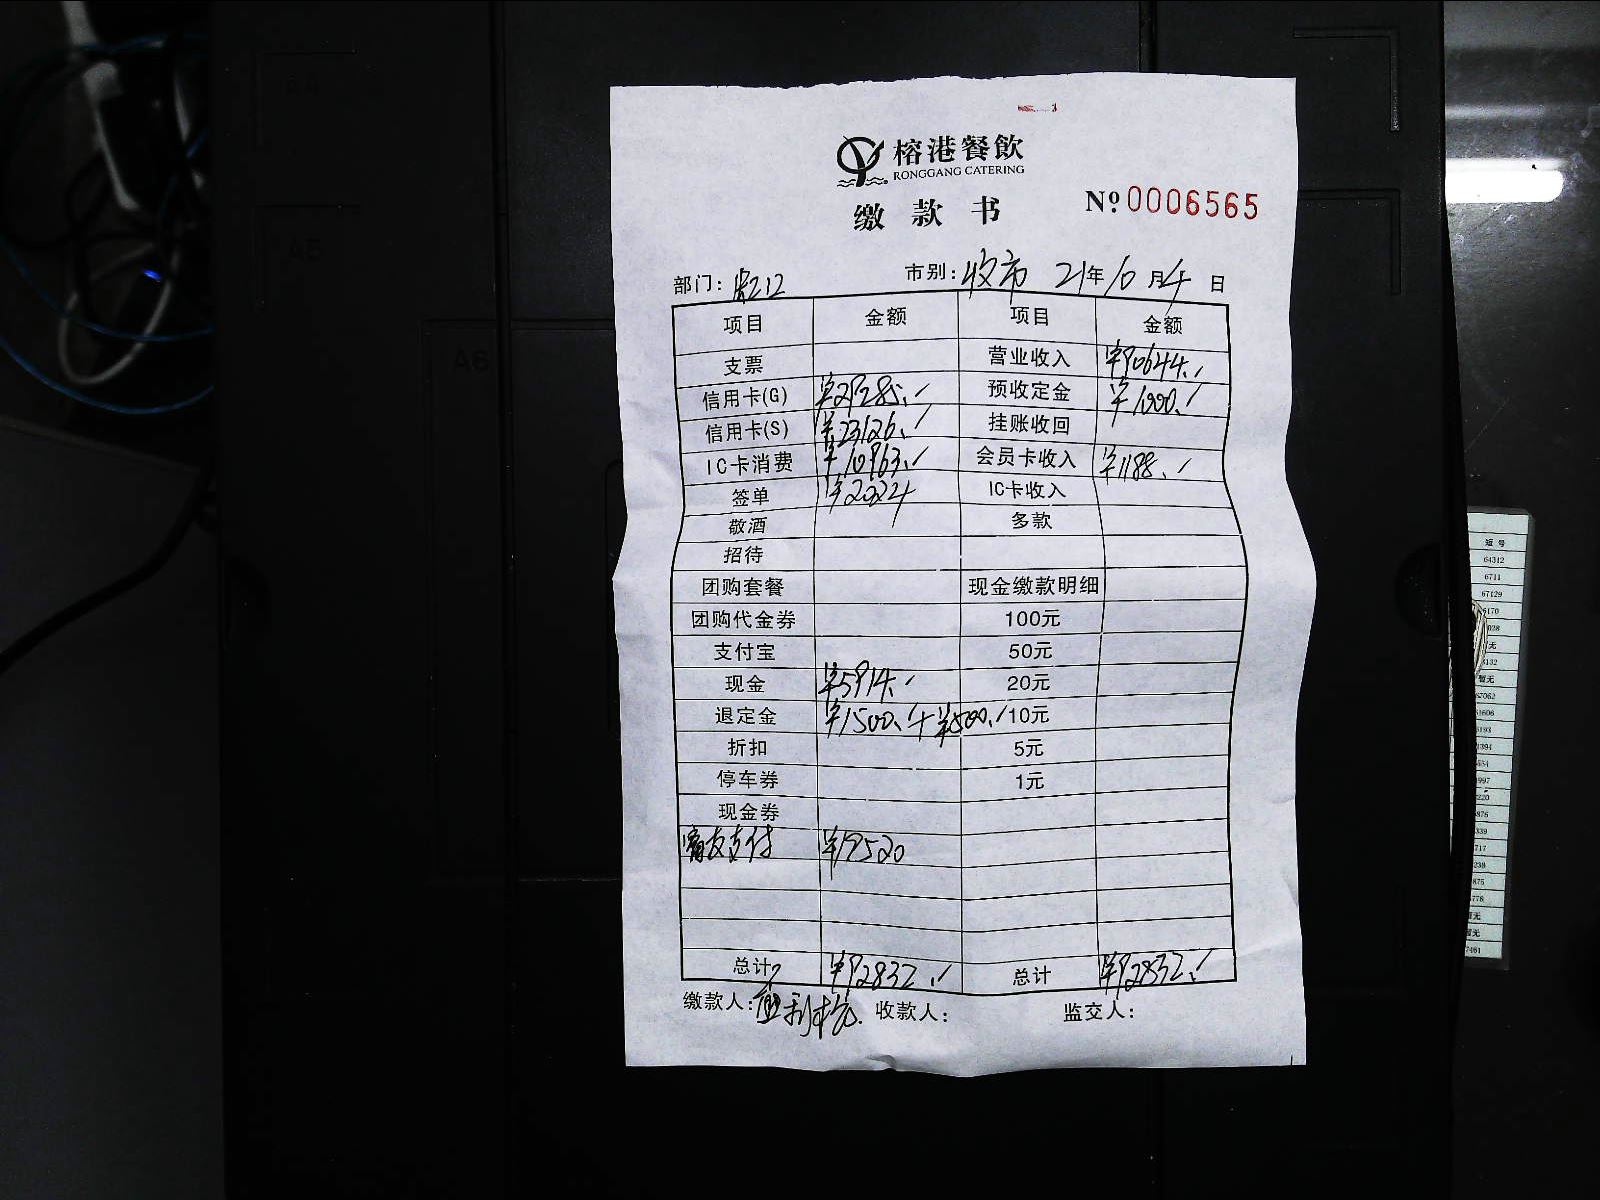 榕港餐飲
RONGGANG CATERING
缴款书 Nº 0006565
部门: 市别: 收市 21年10月4日
项目 金额 项目 金额
支票 营业收入 ¥90644.
信用卡(G) ¥29285. 预收定金 ¥1000.
信用卡(S) ¥23126. 挂账收回
IC卡消费 ¥10963. 会员卡收入 ¥1188.
签单 ¥2024 IC卡收入
敬酒 多款
招待
团购套餐 现金缴款明细
团购代金券 100元
支付宝 50元
现金 ¥5914. 20元
退定金 ¥1500.+¥500. 10元
折扣 5元
停车券 1元
现金券
支付 ¥19520
总计 ¥92832. 总计 ¥92832.
缴款人: 收款人: 监交人:
A5
A6
短号
64312
6711
67129